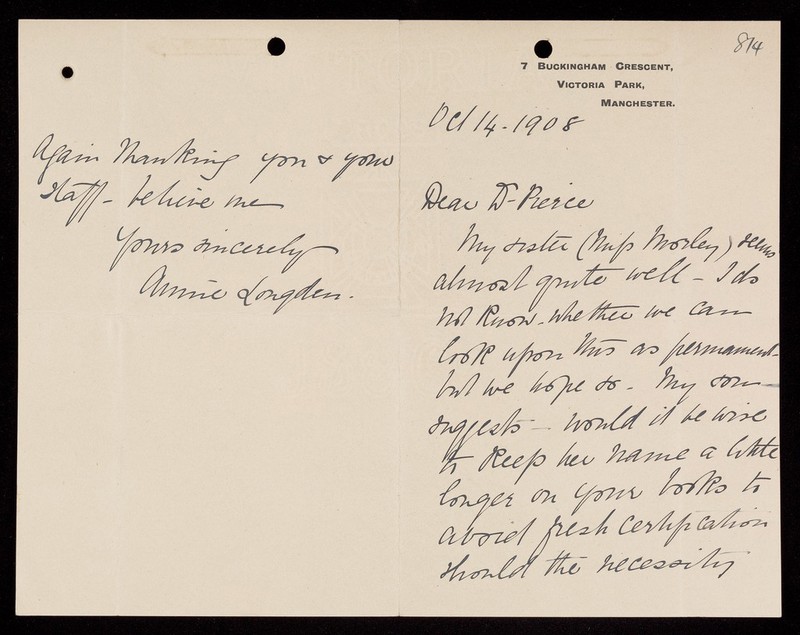 814
7 Buckingham Crescent,
Victoria Park,
Manchester.
Oct 14 - 1908
Dear Dr Pierce
My sister (Miss Morley) seems
almost quite well - I do
not know - whether we can
look upon this as permanent -
but we hope so - My son
suggests - would it be wise
to keep her name a little
longer on your books to
avoid fresh certification
should the necessity
Again thanking you & your
staff - believe me
Yours sincerely
Annie Longden.